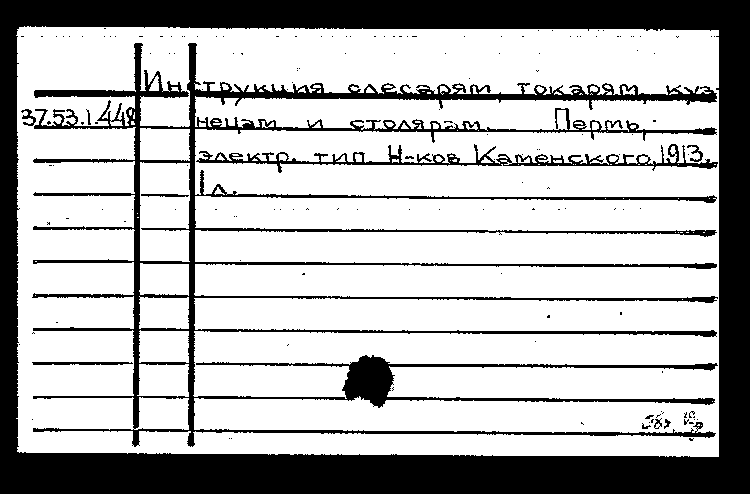 Инструкция слесарям, токарям, куз-
37.53.1.448 нецам и столярам. Пермь,
электр. тип. Н-ков Каменского, 1913.
1 л.